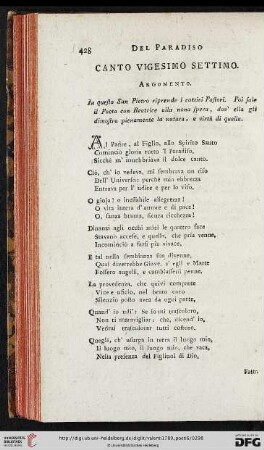 428
DEL PARADISO
CANTO VIGESIMO SETTIMO.
ARGOMENTO.
In questo San Pietro riprende i cattivi Pastori. Poi sale
il Poeta con Beatrice alla nona spera, dov' ella gli
dimostra pienamente la natura, e virtù di quella.
Al Padre, al Figlio, allo Spirito Santo
Cominciò gloria tutto 'l Paradiso,
Sicchè m' innebbriava il dolce canto.
Ciò, ch' io vedeva, mi sembrava un riso
Dell' Universo: perchè mia ebbrezza
Entrava per l' udire e per lo viso.
O gioja! o ineffabile allegrezza!
O vita intera d' amore e di pace!
O, sanza brama, sicura ricchezza!
Dinanzi agli occhi miei le quattro face
Stavano accese, e quella, che pria venne,
Incominciò a farsi più vivace:
E tal nella sembianza sua divenne,
Qual diverrebbe Giove, s' egli e Marte
Fossero augelli, e cambiassersi penne.
La provedenza, che quivi comparte
Vice e uficio, nel beato coro
Silenzio posto avea da ogni parte,
Quand' io udi': Se io mi trascoloro,
Non ti maravigliar: chè, dicend' io,
Vedrai trascolorar tutti costoro.
Quegli, ch' usurpa in terra il luogo mio,
Il luogo mio, il luogo mio, che vaca,
Nella presenza del Figliuol di Dio,
Fatto
http://digi.ub.uni-heidelberg.de/diglit/
UNIVERSITÄTS-
BIBLIOTHEK
HEIDELBERG
DFG